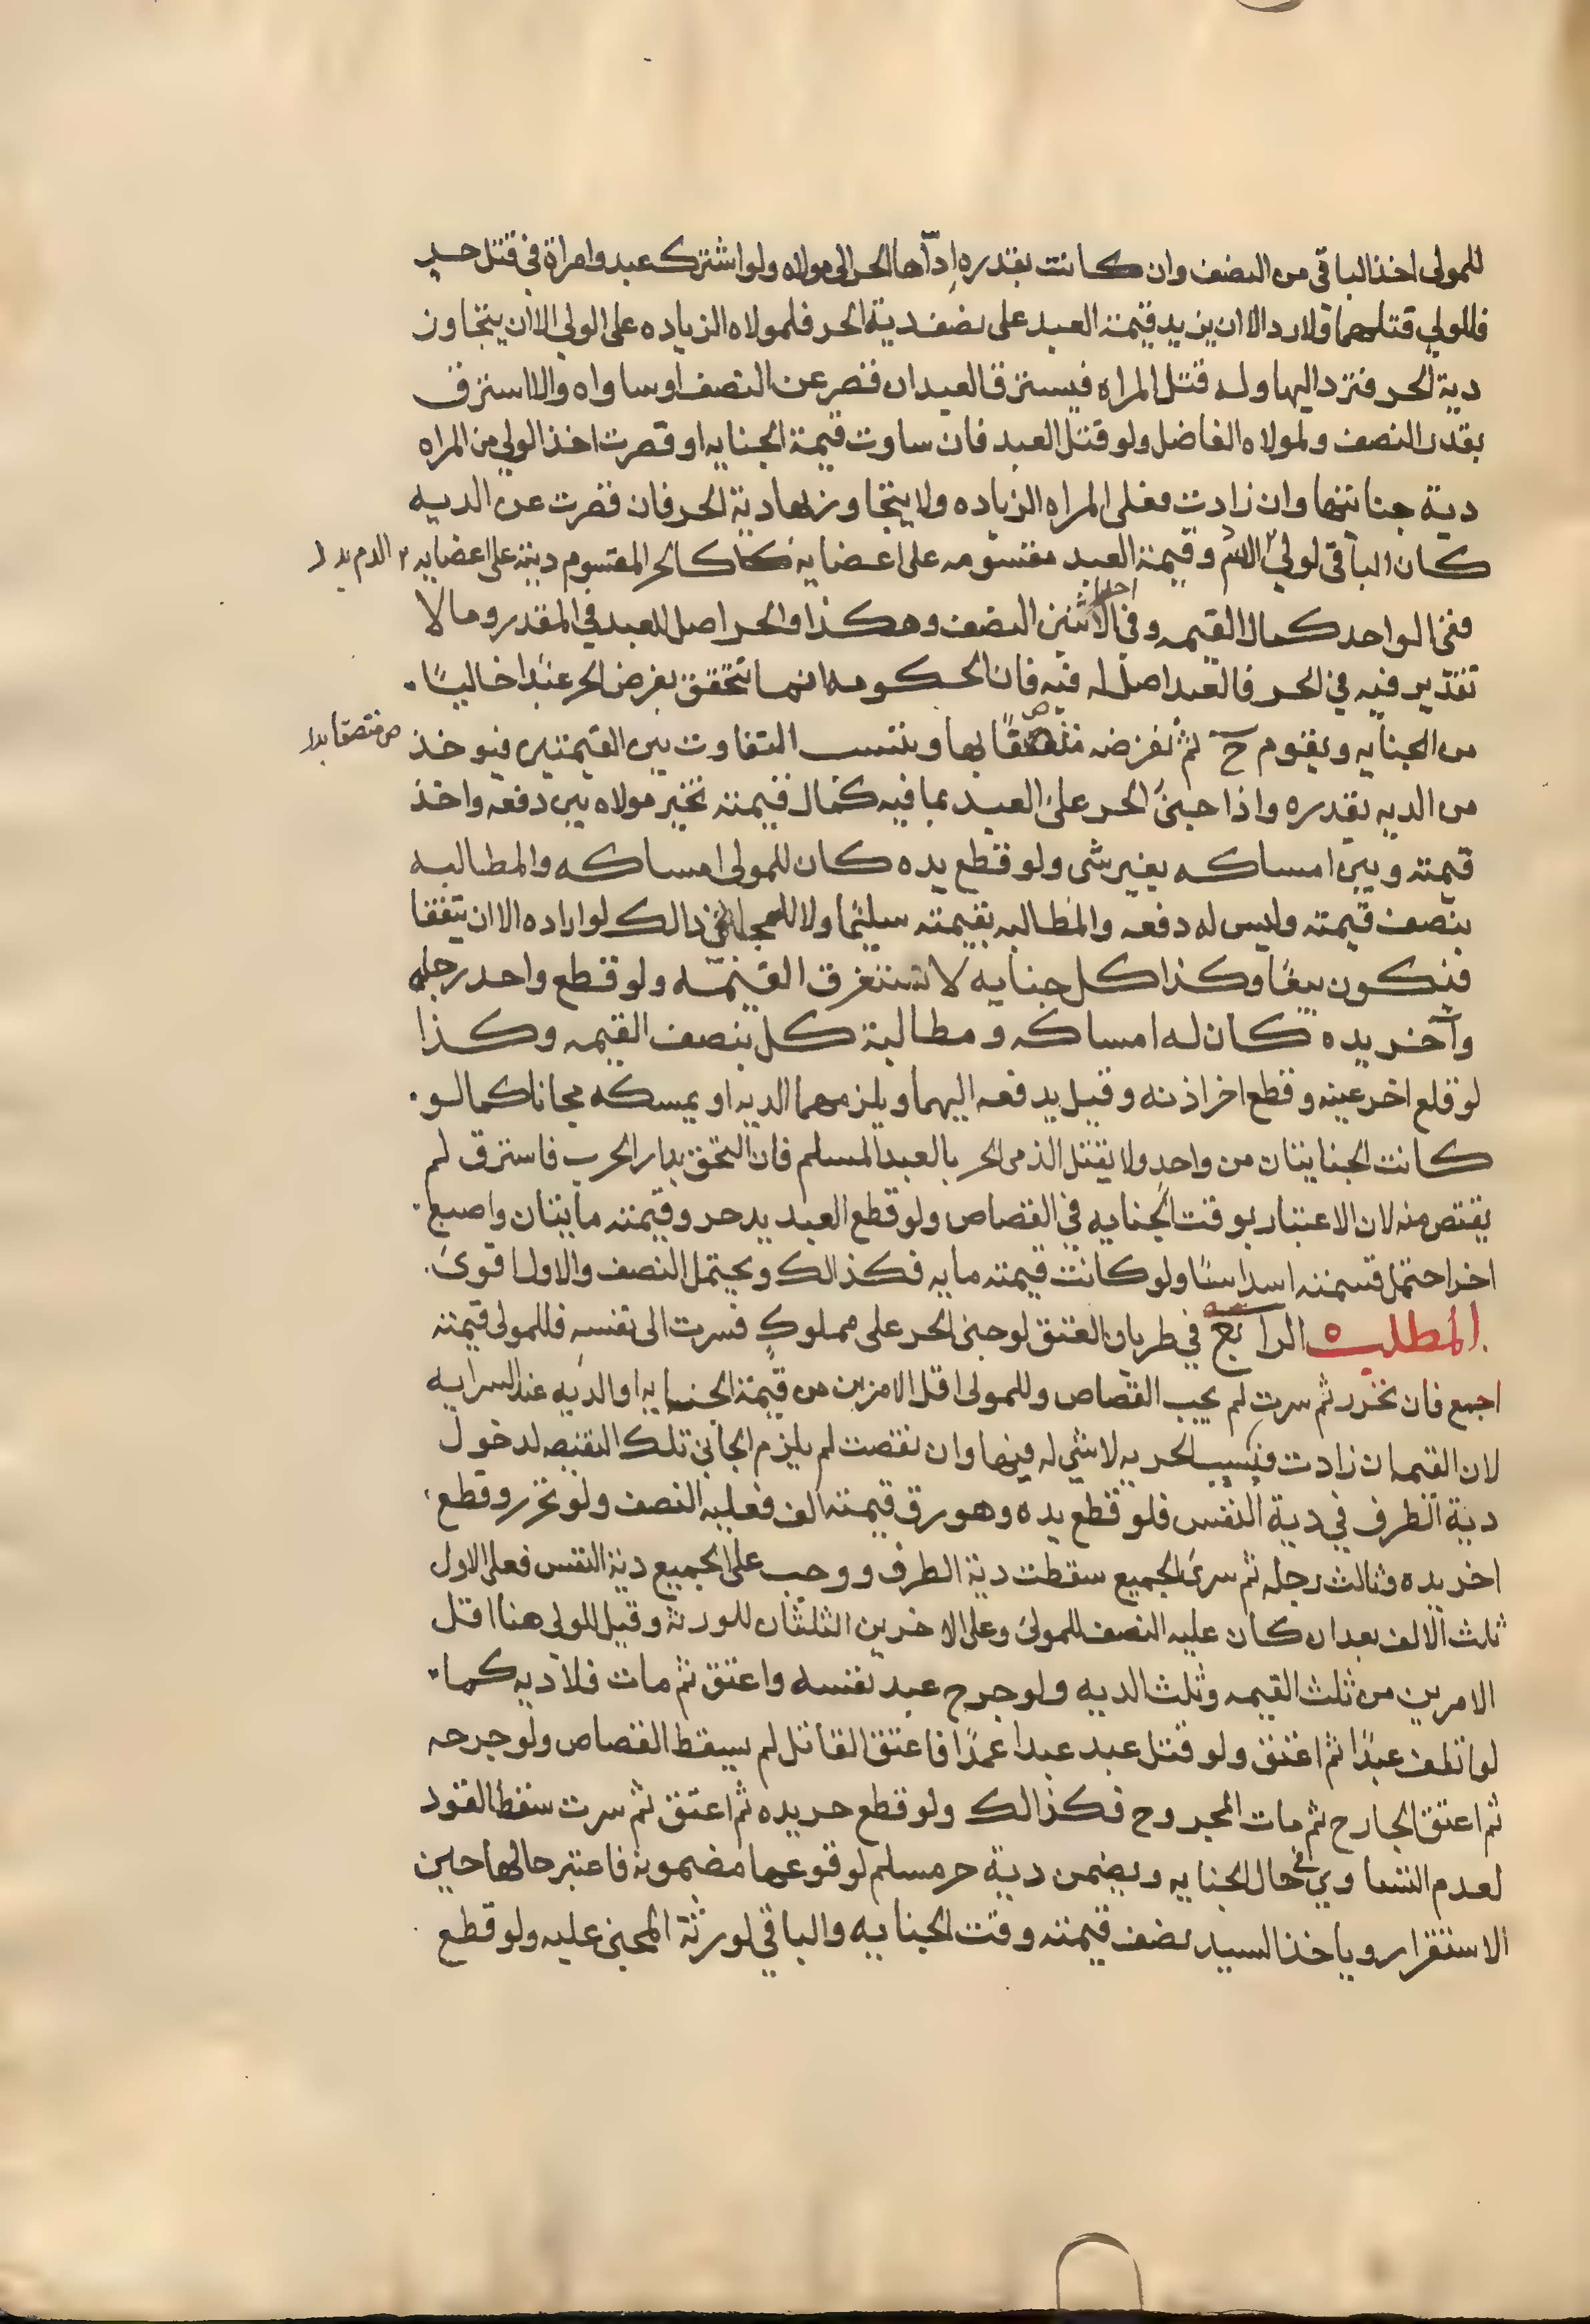 للمولى اخذ الباقي من النصف وان كانت بقدره ادّاها الحر الى مولاه ولو اشترك عبد وامراة في قتل حر
فللولي قتلهما ولا رد الا ان يزيد قيمة العبد على نصف دية الحر فلمولاه الزياده على الولي الا ان يتجاوز
دية الحر فترد اليها وله قتل المراه فيسترق العبد ان قصر عن النصف او ساواه والا استرق
بقدر النصف ولمولاه الفاضل ولو قتل العبد فان ساوت قيمة الجنايه او قصرت اخذ الولي من المراه
دية جنايتها وان زادت فعلى المراه الزياده ولا يتجاوز بها دية الحر فان قصرت عن الديه
كان الباقي لولي وقيمة العبد مقسومه على اعضايه كالحر المقسوم ديته على اعضايه الدم بدل
ففي الواحد كمال القيمه وفي احد الاثنين النصف وهكذا والحر اصل للعبد في المقدر وما لا
تقدير فيه في الحر فالعبد اصل له فيه فان الحكومه انما تتحقق بفرض الحر عبدا خاليًا
من الجنايه ويقوم ح ثم نفرضه متصفًا بها وينسب التفاوت بين القيمتين فيوخذ
ص متصفا بدل
من الديه بقدره واذا جنى الحر على العبد بما فيه كمال قيمته تخير مولاه بين دفعه واخذ
قيمته وبين امساكه بغير شى ولو قطع يده كان للمولى امساكه والمطالبه
بنصف قيمته وليس له دفعه والمطالبه بقيمته سليما ولا للجاني ذالك لو اراده الا ان يتفقا
فيكون بيعًا وكذا كل جنايه لا تستغرق القيمه ولو قطع واحد رجله
وآخر يده كان له امساكه ومطالبة كل بنصف القيمه وكذا
لو قلع اخر عينه وقطع اخر اذنه وقيل يدفعه اليهما ويلزمهما الديه او يمسكه مجانا كما لو
كانت الجنايتان من واحد ولا يقتل الذمى الحر بالعبد المسلم فان التحق بدار الحرب فاسترق لم
يقتص منه لان الاعتبار بوقت الجنايه في القصاص ولو قطع العبد يد حر وقيمته مايتان واصبع
اخر احتمل قسمته اسداسًا ولو كانت قيمته مايه فكذالك ويحتمل النصف والاول اقوى
المطلب الرابع في طريان العتق لو جنى الحر على مملوكٍ فسرت الى نفسه فللمولى قيمته
اجمع فان تحرر ثم سرت لم يجب القصاص وللمولى اقل الامرين من قيمة الجنايه او الديه عند السرايه
لان القيمه ان زادت فبسبب الحريه لا شي له فيها وان نقصت لم يلزم الجاني تلك النقيصه لدخول
دية الطرف في دية النفس فلو قطع يده وهو رق قيمته الف فعليه النصف ولو تحرر وقطع
اخر يده وثالث رجله ثم سرى الجميع سقطت دية الطرف ووجب على الجميع دية النفس فعلى الاول
ثلث الالف بعد ان كان عليه النصف للمولى وعلى الاخرين الثلثان للورثه وقيل للولى هنا اقل
الامرين من ثلث القيمه وثلث الديه ولو جرح عبد نفسه واعتق ثم مات فلا ديه كما
لو اتلف عبدًا ثم اعتق ولو قتل عبد عبدا عمدًا فاعتق القاتل لم يسقط القصاص ولو جرحه
ثم اعتق الجارح ثم مات المجروح فكذالك ولو قطع حر يده ثم اعتق ثم سرت سقط القود
لعدم التساوي في حال الجنايه ويضمن دية حر مسلم لوقوعها مضمونة فاعتبر حالها حين
الاستقرار وياخذ السيد نصف قيمته وقت الجنايه والباقي لورثة المجني عليه ولو قطع